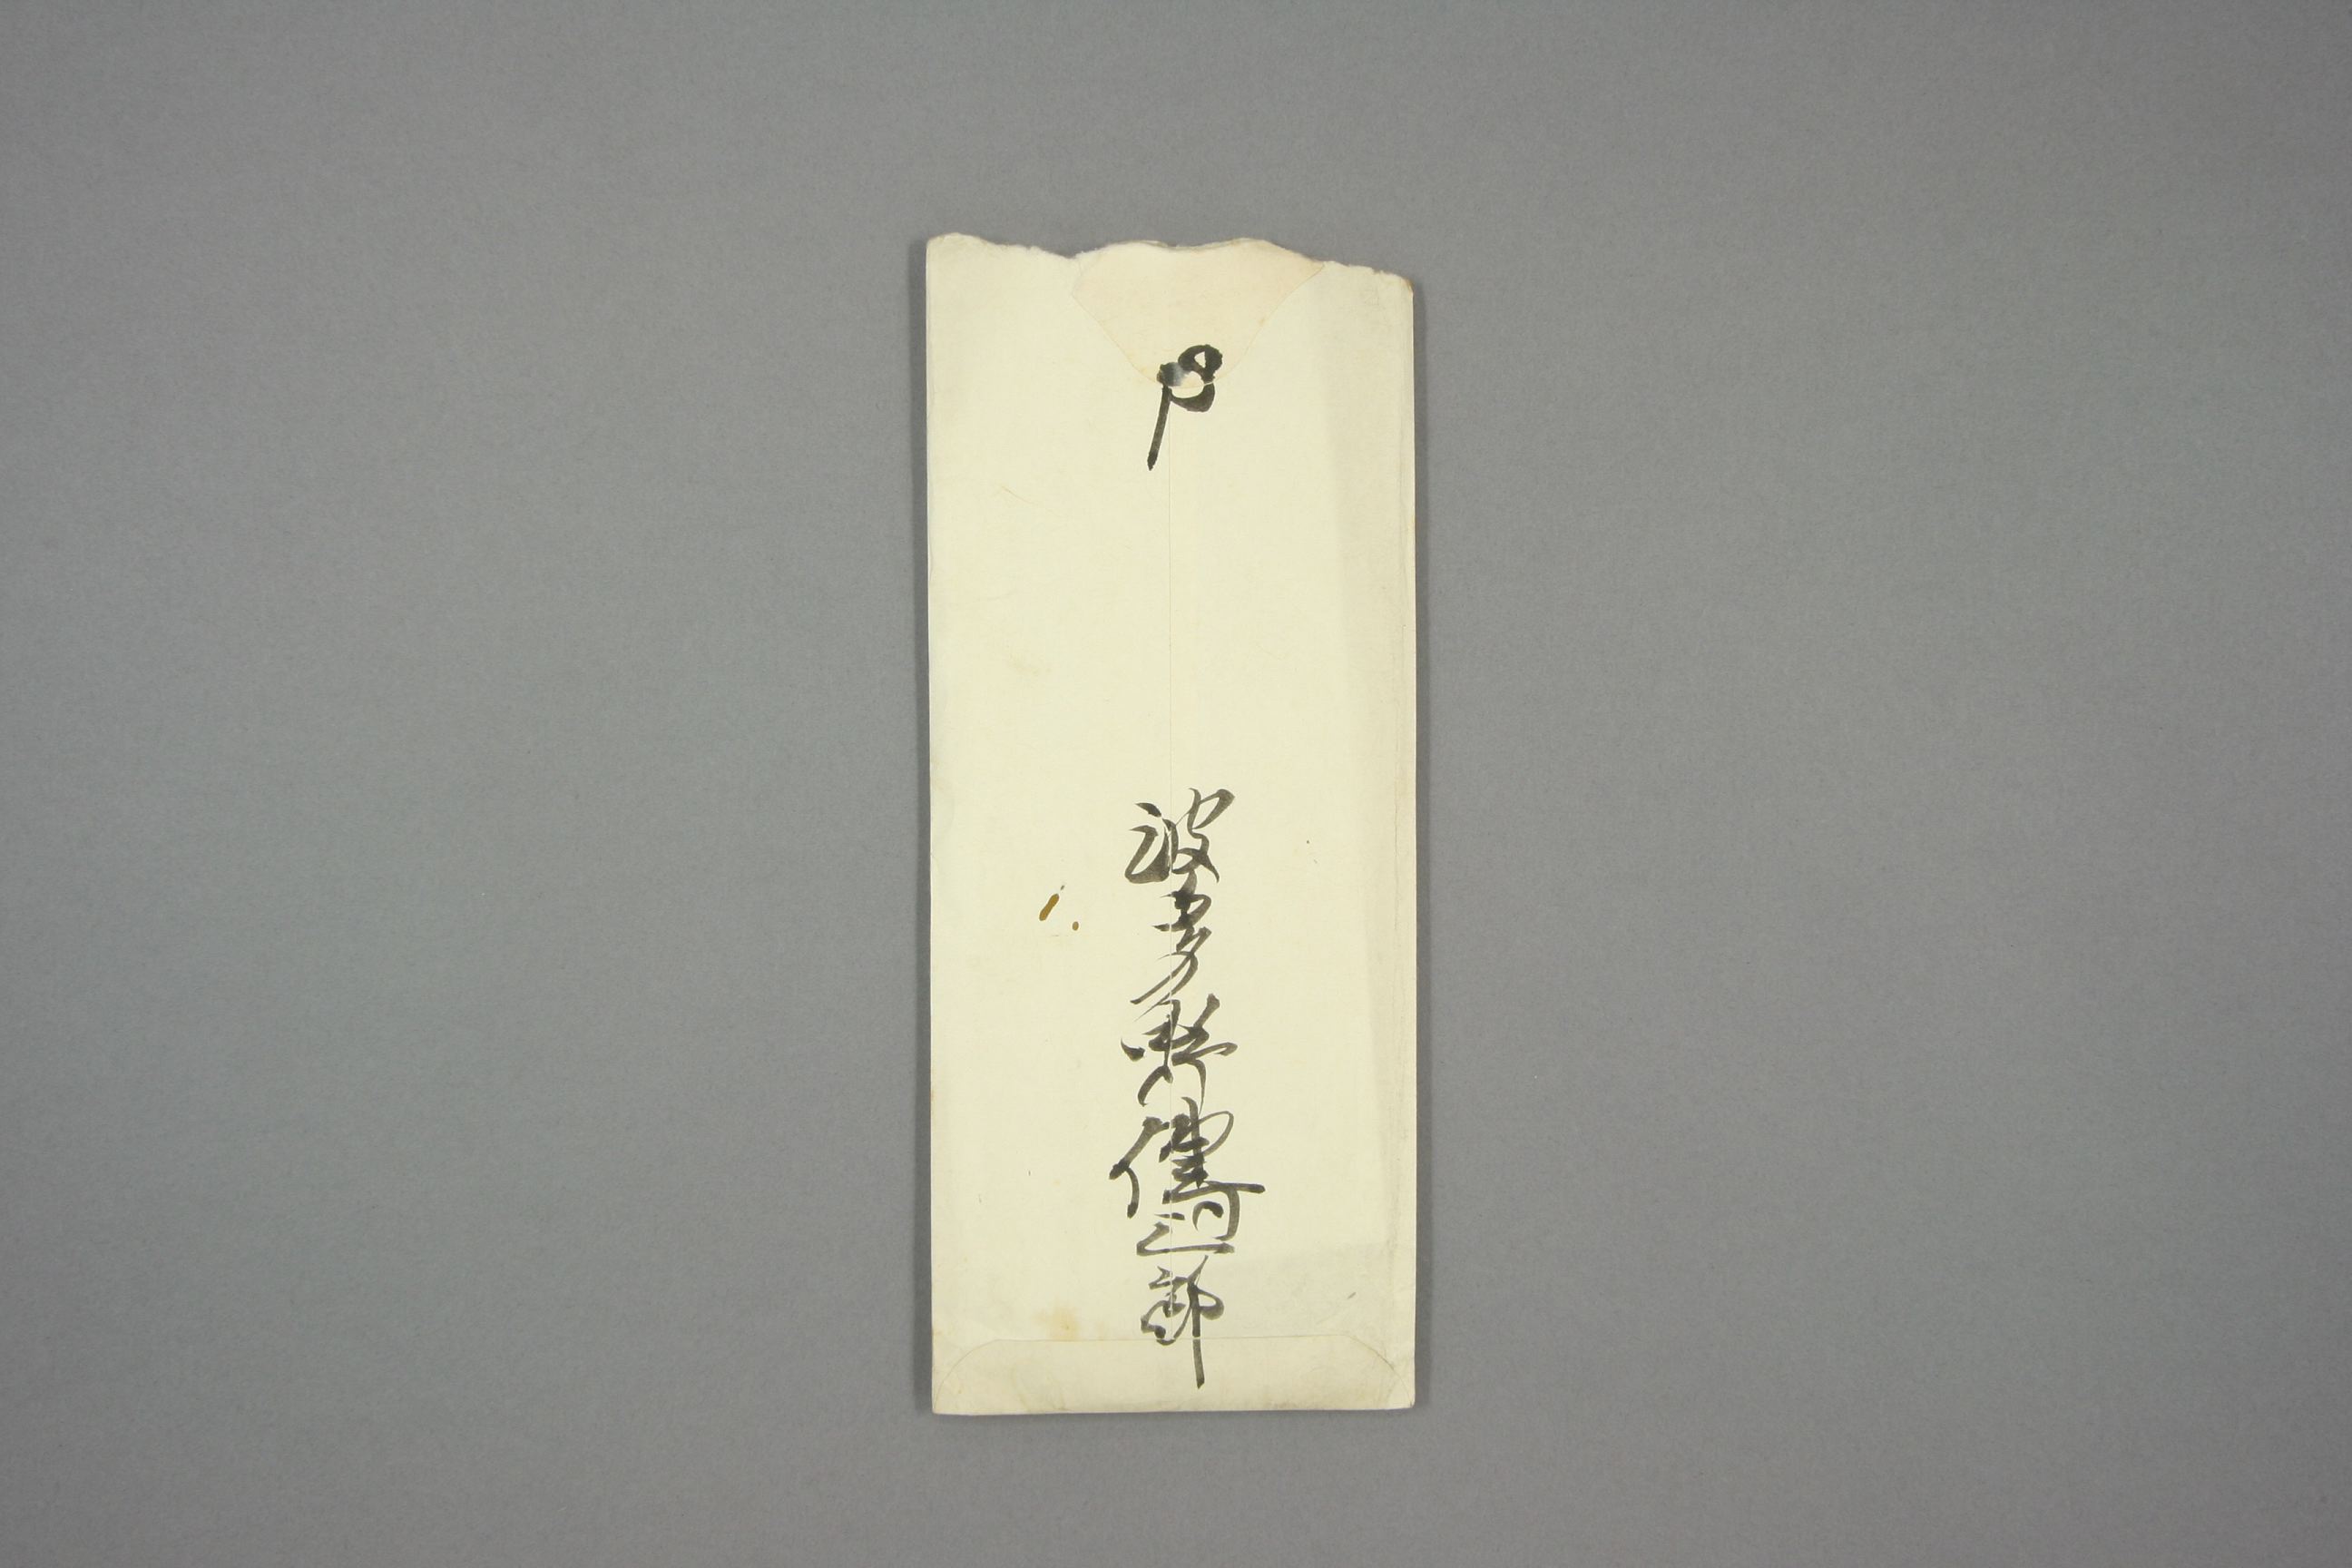 波多野傳三郎